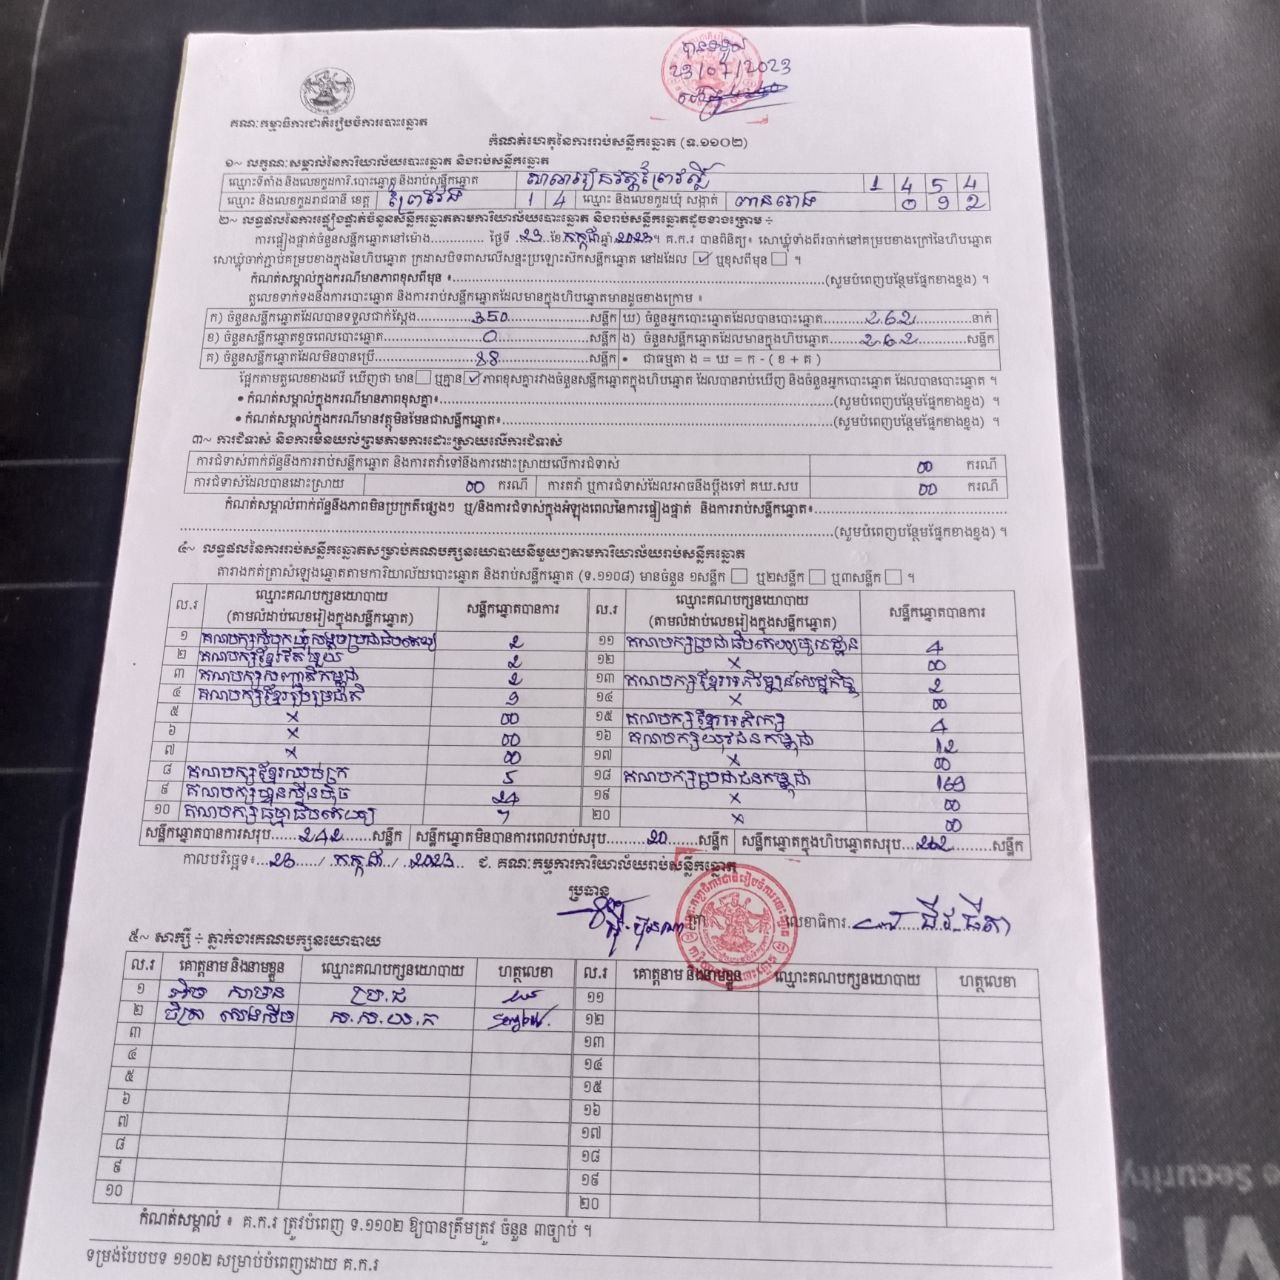 បានទទួល
23/07/2023
គណៈកម្មាធិការជាតិរៀបចំការបោះឆ្នោត
កំណត់ហេតុនៃការរាប់សន្លឹកឆ្នោត (ទ.១១០២)
១~ លក្ខណៈសម្គាល់នៃការិយាល័យបោះឆ្នោត និងរាប់សន្លឹកឆ្នោត
ឈ្មោះទីតាំង និងលេខកូដការិ.បោះឆ្នោត និងរាប់សន្លឹកឆ្នោត 1 4 5 4
ឈ្មោះ និងលេខកូដរាជធានី ខេត្ត ព្រៃវែង 1 4 ឈ្មោះ និងលេខកូដឃុំ សង្កាត់ ពានរោង 0 9 2
២~ លទ្ធផលនៃការផ្ទៀងផ្ទាត់ចំនួនសន្លឹកឆ្នោតតាមការិយាល័យបោះឆ្នោត និងរាប់សន្លឹកឆ្នោតដូចខាងក្រោម ÷
ការផ្ទៀងផ្ទាត់ចំនួនសន្លឹកឆ្នោតនៅម៉ោង............. ថ្ងៃទី .23.ខែ កក្កដា ឆ្នាំ.2023។ គ.ក.រ បានពិនិត្យ៖ សោឃ្លុំទាំងពីរចាក់នៅគម្របខាងក្រៅនៃហិបឆ្នោត
សោឃ្លុំចាក់ភ្ជាប់គម្របខាងក្នុងនៃហិបឆ្នោត ក្រដាសបិទពាសលើសន្ទះប្រឡោះសឹកសន្លឹកឆ្នោត នៅដដែល ☑ ឬខុសពីមុន ☐ ។
កំណត់សម្គាល់ក្នុងករណីមានភាពខុសពីមុន ៖..........(សូមបំពេញបន្ថែមផ្នែកខាងខ្នង) ។
តួលេខទាក់ទងនឹងការបោះឆ្នោត និងការរាប់សន្លឹកឆ្នោតដែលមានក្នុងហិបឆ្នោតមានដូចខាងក្រោម ៖
ក) ចំនួនសន្លឹកឆ្នោតដែលបានទទួលជាក់ស្តែង......350......សន្លឹក ឃ) ចំនួនអ្នកបោះឆ្នោតដែលបានបោះឆ្នោត......262......នាក់
ខ) ចំនួនសន្លឹកឆ្នោតខូចពេលបោះឆ្នោត......0......សន្លឹក ង) ចំនួនសន្លឹកឆ្នោតដែលមានក្នុងហិបឆ្នោត......262......សន្លឹក
គ) ចំនួនសន្លឹកឆ្នោតដែលមិនបានប្រើ......88......សន្លឹក • ជាធម្មតា ង = ឃ = ក - ( ខ + គ )
ផ្អែកតាមតួលេខខាងលើ ឃើញថា មាន☐ ឬគ្មាន☑ ភាពខុសគ្នារវាងចំនួនសន្លឹកឆ្នោតក្នុងហិបឆ្នោត ដែលបានរាប់ឃើញ និងចំនួនអ្នកបោះឆ្នោត ដែលបានបោះឆ្នោត ។
• កំណត់សម្គាល់ក្នុងករណីមានភាពខុសគ្នា៖..........(សូមបំពេញបន្ថែមផ្នែកខាងខ្នង) ។
• កំណត់សម្គាល់ក្នុងករណីមានវត្ថុមិនមែនជាសន្លឹកឆ្នោត៖..........(សូមបំពេញបន្ថែមផ្នែកខាងខ្នង) ។
៣~ ការជំទាស់ និងការមិនយល់ព្រមតាមការដោះស្រាយលើការជំទាស់
ការជំទាស់ពាក់ព័ន្ធនឹងការរាប់សន្លឹកឆ្នោត និងការតវ៉ាទៅនឹងការដោះស្រាយលើការជំទាស់ 00 ករណី
ការជំទាស់ដែលបានដោះស្រាយ 00 ករណី ការតវ៉ា ឬការជំទាស់ដែលអាចនឹងប្តឹងទៅ គឃ.សប 00 ករណី
កំណត់សម្គាល់ពាក់ព័ន្ធនឹងភាពមិនប្រក្រតីផ្សេងៗ ឬ/និងការជំទាស់ក្នុងអំឡុងពេលនៃការផ្ទៀងផ្ទាត់ និងការរាប់សន្លឹកឆ្នោត៖..........
..........(សូមបំពេញបន្ថែមផ្នែកខាងខ្នង) ។
៤~ លទ្ធផលនៃការរាប់សន្លឹកឆ្នោតសម្រាប់គណបក្សនយោបាយនីមួយៗតាមការិយាល័យរាប់សន្លឹកឆ្នោត
តារាងកត់ត្រាសំឡេងឆ្នោតតាមការិយាល័យបោះឆ្នោត និងរាប់សន្លឹកឆ្នោត (ទ.១១០៨) មានចំនួន ១សន្លឹក ☐ ឬ២សន្លឹក ☐ ឬ៣សន្លឹក ☐ ។
ល.រ ឈ្មោះគណបក្សនយោបាយ (តាមលំដាប់លេខរៀងក្នុងសន្លឹកឆ្នោត) សន្លឹកឆ្នោតបានការ ល.រ ឈ្មោះគណបក្សនយោបាយ (តាមលំដាប់លេខរៀងក្នុងសន្លឹកឆ្នោត) សន្លឹកឆ្នោតបានការ
១ គណបក្សសំបុកឃ្មុំសង្គមប្រជាធិបតេយ្យ 2 ១១ គណបក្សប្រជាធិបតេយ្យមូលដ្ឋាន 4
២ គណបក្សខ្មែរតែមួយ 2 ១២ x 00
៣ គណបក្សសញ្ជាតិកម្ពុជា 2 ១៣ គណបក្សខ្មែរអភិវឌ្ឍន៍សេដ្ឋកិច្ច 2
៤ គណបក្សខ្មែររួបរួមជាតិ 9 ១៤ x 00
៥ x 00 ១៥ គណបក្សខ្មែរអភិរក្ស 4
៦ x 00 ១៦ គណបក្សយុវជនកម្ពុជា 12
៧ x 00 ១៧ x 00
៨ គណបក្សខ្មែរឈប់ក្រ 5 ១៨ គណបក្សប្រជាជនកម្ពុជា 169
៩ គណបក្សហ៊្វុនស៊ិនប៉ិច 24 ១៩ x 00
១០ គណបក្សធម្មាធិបតេយ្យ 7 ២០ x 00
សន្លឹកឆ្នោតបានការសរុប......242......សន្លឹក សន្លឹកឆ្នោតមិនបានការពេលរាប់សរុប......20......សន្លឹក សន្លឹកឆ្នោតក្នុងហិបឆ្នោតសរុប...262......សន្លឹក
កាលបរិច្ឆេទ៖...23..../ កក្កដា./ .2023.. ជ. គណៈកម្មការការិយាល័យរាប់សន្លឹកឆ្នោត
ប្រធាន
លេខាធិការ
៥~ សាក្សី ÷ ភ្នាក់ងារគណបក្សនយោបាយ
ល.រ គោត្តនាម និងនាមខ្លួន ឈ្មោះគណបក្សនយោបាយ ហត្ថលេខា ល.រ គោត្តនាម និងនាមខ្លួន ឈ្មោះគណបក្សនយោបាយ ហត្ថលេខា
១ អ៊ិច សាម៉ន ប្រ.ជ ១១
២ ស.ស.យ.ក ១២
៣ ១៣
៤ ១៤
៥ ១៥
៦ ១៦
៧ ១៧
៨ ១៨
៩ ១៩
១០ ២០
កំណត់សម្គាល់ ៖ គ.ក.រ ត្រូវបំពេញ ទ.១១០២ ឱ្យបានត្រឹមត្រូវ ចំនួន ៣ច្បាប់ ។
ទម្រង់បែបបទ ១១០២ សម្រាប់បំពេញដោយ គ.ក.រ
e Security